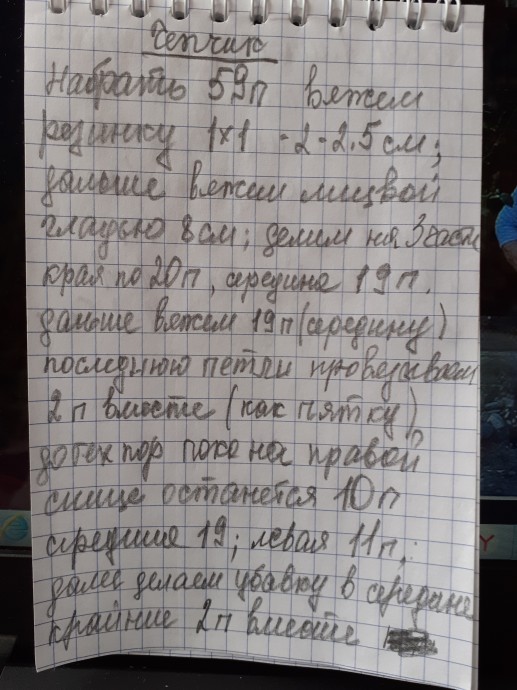 Чепчик
Набрать 59п вяжем
резинку 1x1 - 2-2.5 см;
дальше вяжем лицвой
гладью 8 см; делим на 3 части
края по 20п, середина 19п.
дальше вяжем 19п (середину)
последнюю петли провезываем
2п вместе (как пятку)
до тех пор пока на правой
спице останется 10п
середине 19; левая 11п;
далее делаем убавку в середине
крайние 2п вместе